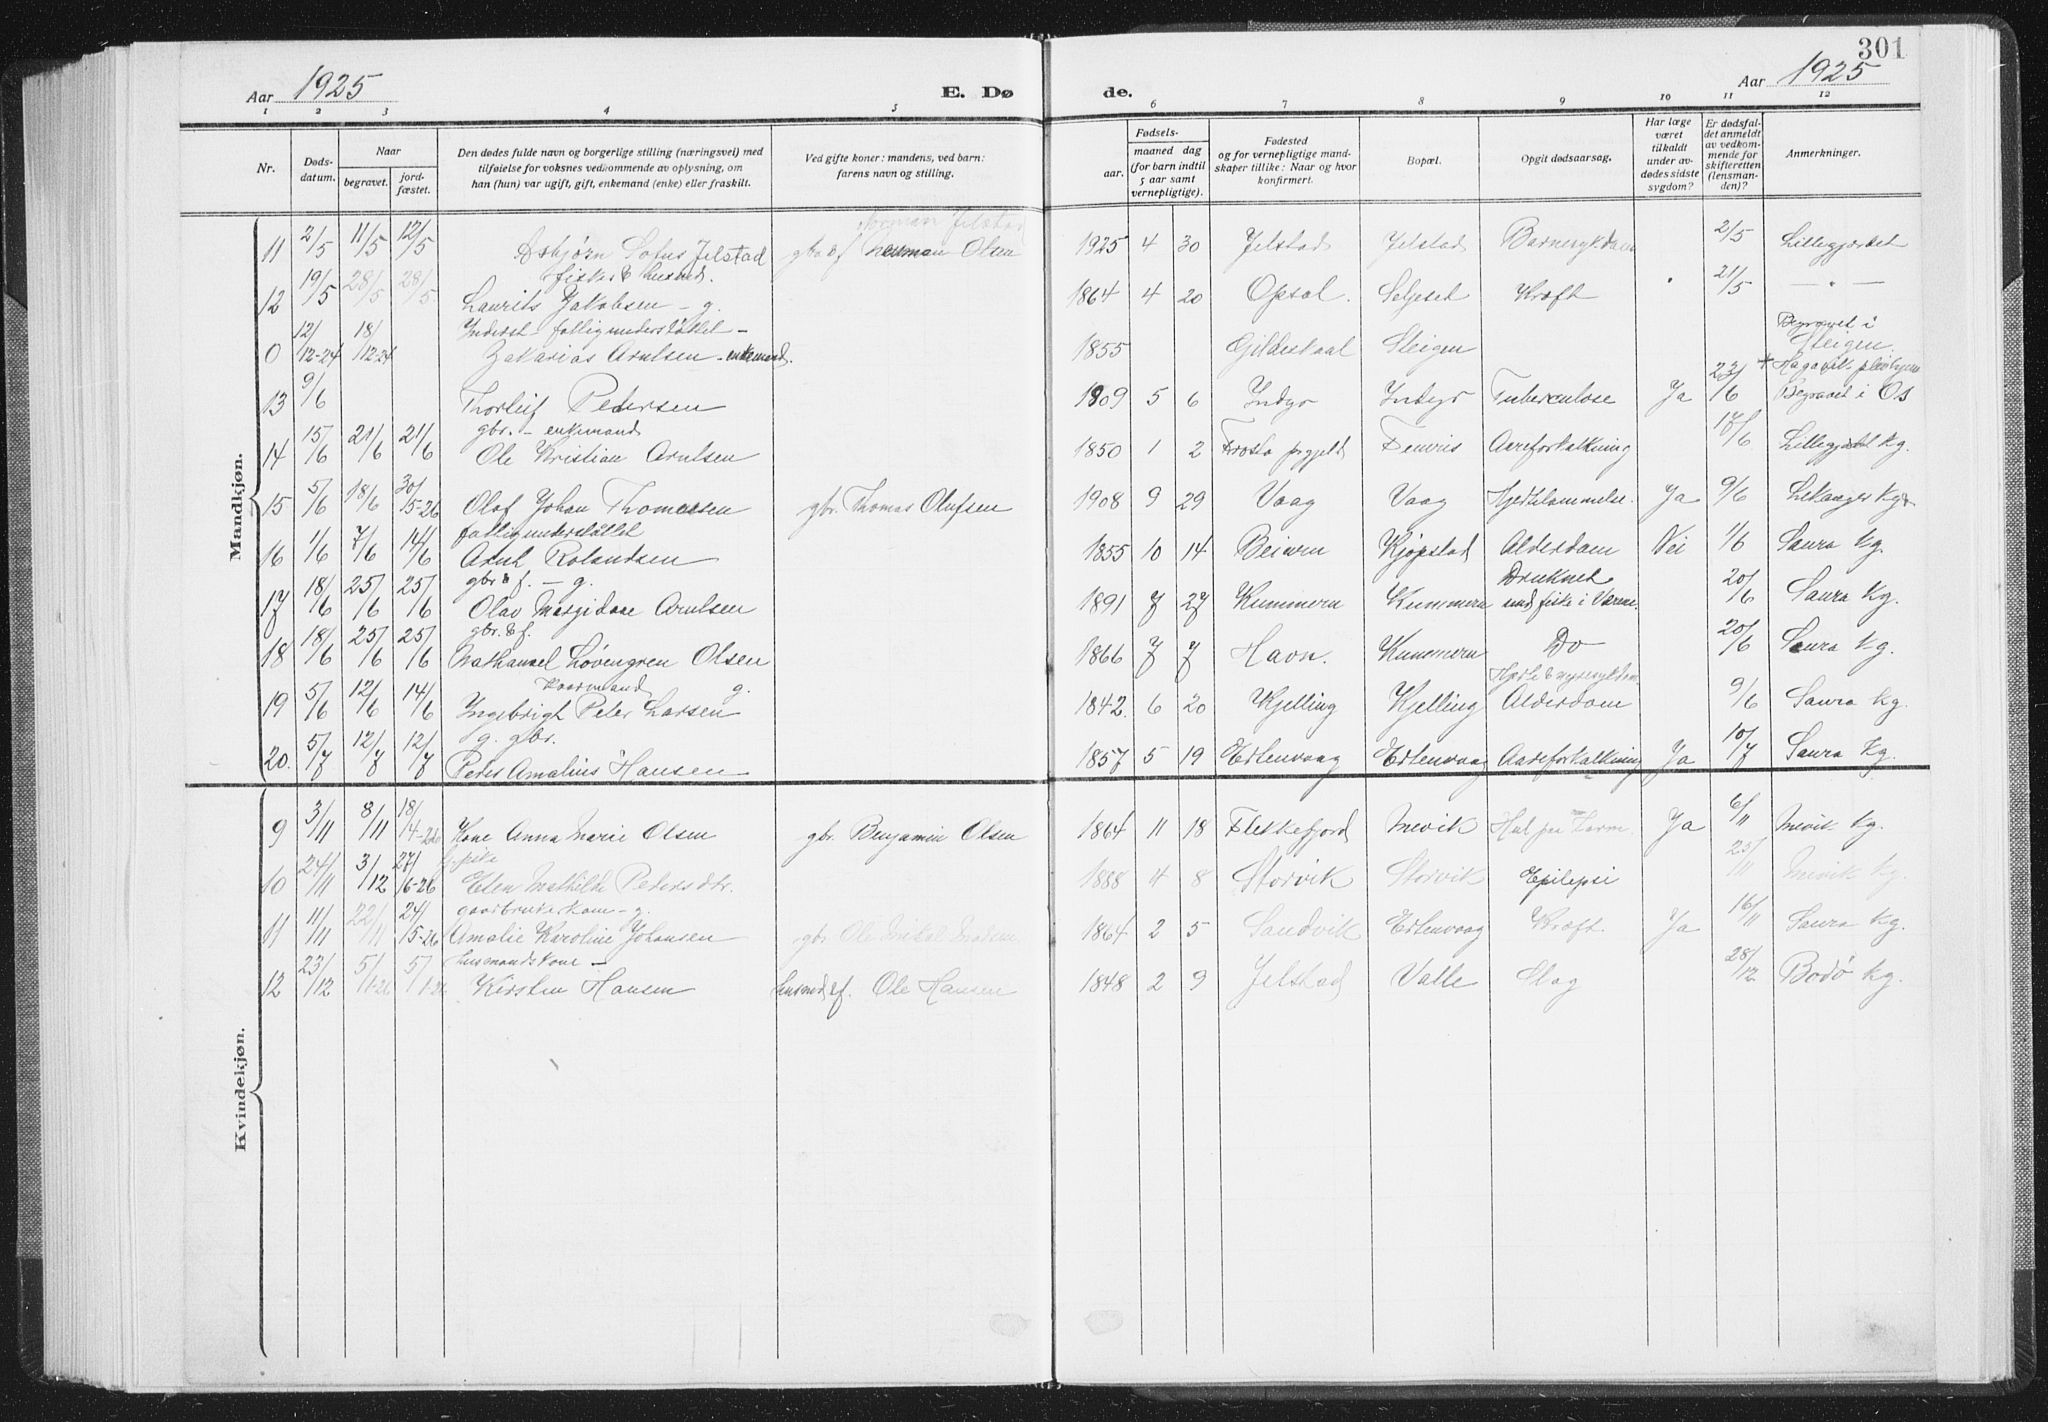 301
Aar 1925 E. Døde. Aar 1925
1 2 3 4 5 6 7 8 9 10 11 12
Nr. Døds-datum. Naar begravet. jord-fæstet. Den dødes fulde navn og borgerlige stilling (næringsvei) med tilføielse for voksnes vedkommende av oplysning, om han (hun) var ugift, gift, enkemand (enke) eller fraskilt. Ved gifte koner: mandens, ved barn: farens navn og stilling. Fødsels- aar. maaned dag (for barn indtil 5 aar samt vernepligtige). Fødested og for vernepligtige mandskaper tillike: Naar og hvor konfirmert. Bopæl. Opgit dødsaarsag. Har læge været tilkaldt under avdødes sidste sygdom? Er dødsfaldet anmeldt av vedkommende for skifteretten (lensmanden)? Anmerkninger.
Mandkjøn.
Norman Jelstad
11 2/5 11/5 12/5 Asbjørn Sofus Jelstad gbr & f Olsen 1925 4 30 Jelstad Jelstad Barnesykdom 2/5 Lillegjordet
fisker & husmd.
12 19/5 28/5 28/5 Laurits Jakobsen - g. 1864 4 20 Opsal. Seljeset Kræft " 21/5 - " -
Inderst - fattigunderstøttet -
0 12/12-24 18/12-24 Zakarias Arntsen - enkemand. 1855 Gildeskaal Steigen Begravet i Steigen.
13 9/6 Thorleif Pedersen 1909 5 6 Indyr Indyr Tuberculose Ja 23/6 + Hagavik pleiehjem Begravet i Os
gbr. - enkemand
14 15/6 21/6 21/6 Ole Kristian Arntsen 1850 1 2 Frosta prgjeld Fenvris Aareforkalkning 17/6 Lillegjordet Kg.
15 5/6 18/6 30/5-26 Olaf Johan Thomassen gbr. Thomas Olufsen 1908 9 29 Vaag Vaag Hjertelammelse. Ja 9/6 Lekanger Kg.
fattigunderstøttet
16 1/6 7/6 14/6 Arnt Rolandsen 1855 10 14 Beiarn Kjøpstad Alderdom Nei 1/6 Saura Kg.
gbr & f. - g.
17 18/6 25/6 25/6 Olav Margidore Arntsen 1891 7 27 Kummern Kummern Druknet und fiske i Værøe. 20/6 Saura Kg.
gbr. & f.
18 18/6 25/6 25/6 Nathanael Løvengren Olsen 1866 7 7 Havn. Kummern Do 20/6 Saura Kg.
Kaarmand g.
19 5/6 12/6 14/6 Ingebrigt Peter Larsen 1842. 6 20 Kjelling Kjelling Hjerte & nyresykdom Alderdom 9/6 Saura Kg.
g. gbr.
20. 5/7 12/7 12/7 Peder Amalius Hansen 1857 5 19 Ertenvaag Ertenvaag Aareforkalkning Ja 10/7 Saura Kg.
Kvindekjøn.
9 3/11 8/11 18/14-26 Kone Anna Marie Olsen gbr. Benjamin Olsen 1864 11 18 Flekkefjord Mevik Hul paa Tarm. Ja 6/11 Mevik Kg.
10 24/11 3/12 27/6-26 Elen Mathilde Pedersdtr. 1888 4 8 Storvik Storvik Epilepsi 25/11 Mevik Kg.
gaardbrukerkone - g.
11 11/11 22/11 24/5-26 Amalie Karoline Johansen gbr Ole Mikal Madsen. 1864 2 5 Sandvik Ertenvaag Kræft. Ja 16/11 Saura Kg.
husmandskone -
12 23/12 5/1-26 5/1-26 Kirsten Hansen husmd & f. Ole Hansen 1848 2 9 Jelstad Valle Slag 28/12 Bodø Kg.